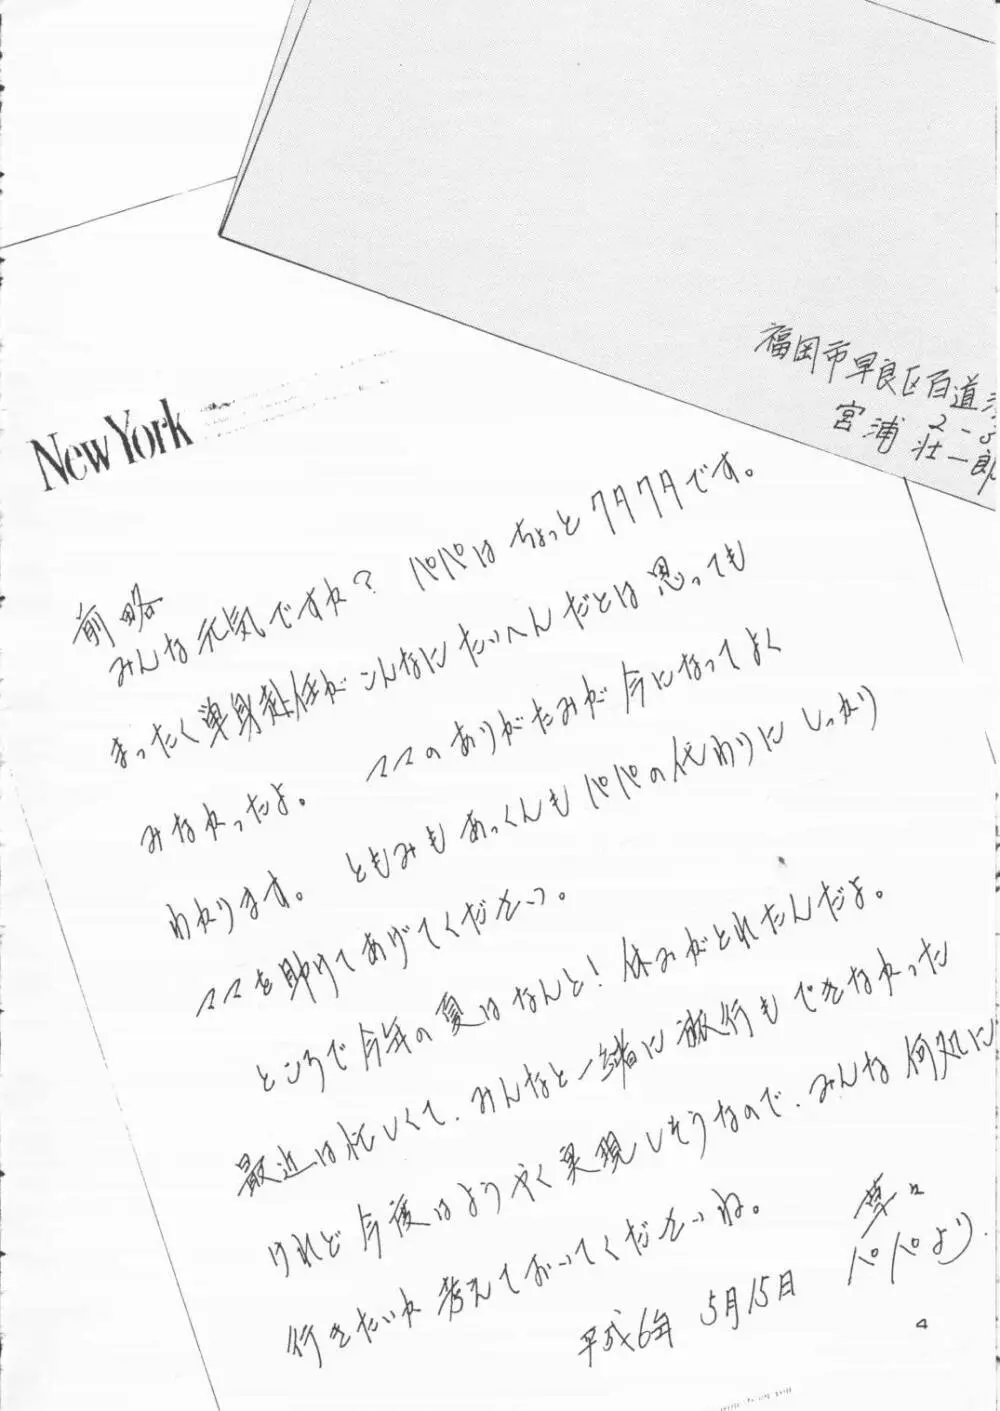 福岡市早良区百道
2-5
宮浦 壮一郎
New York
前略
みんな元気ですか? パパはちょっとクタクタです。
まったく単身赴任がこんなにたいへんだとは思っても
みなかったよ。 ママのありがたみが今になってよく
わかります。 ともみもあっくんもパパの代わりにしっかり
ママを助けてあげてください。
ところで今年の夏はなんと! 休みがとれたんだよ。
最近は忙しくて、みんなと一緒に旅行もできなかった
けれど今度はようやく実現しそうなので、みんな何処に
行きたいか考えておいてくださいね。
草々
パパより.
平成6年 5月15日
4